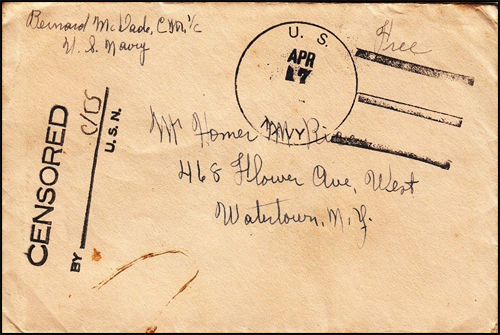 Bernard McDade, C.M. 1/c
U. S. Navy
Free
U. S.
APR
17
CENSORED
BY
U.S.N.
Mr Homer
468 Flower Ave, West
Watertown, N.Y.